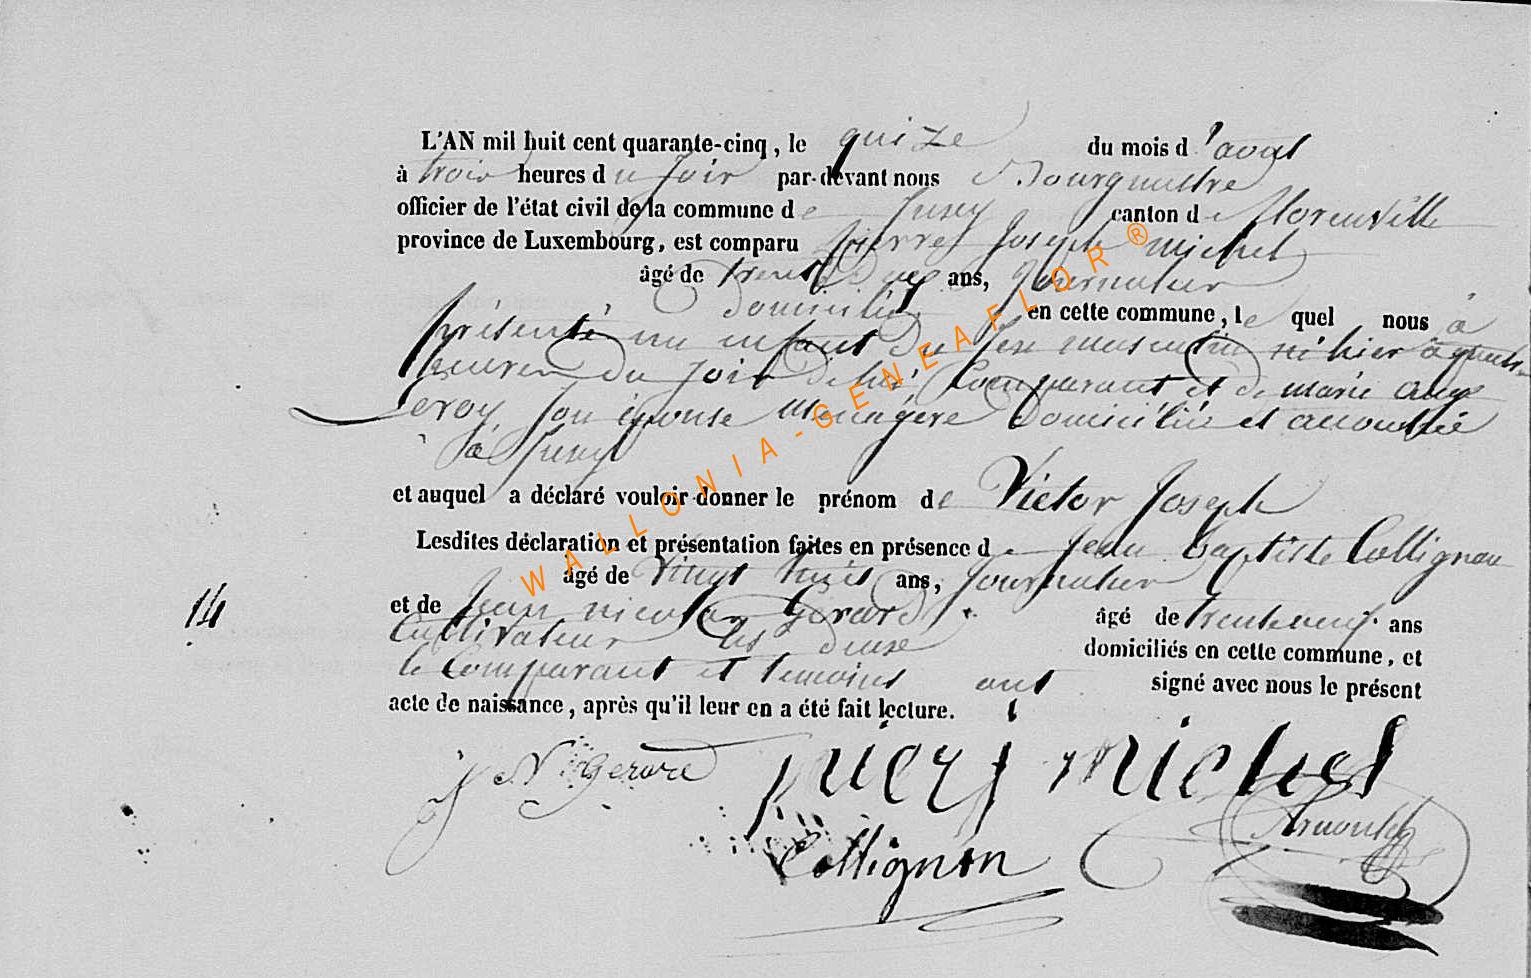 L'AN mil huit cent quarante-cinq, le quize du mois d'avril
à trois heures du soir par-devant nous Bourgmestre
officier de l'état civil de la commune de Jusey canton de Florenville
province de Luxembourg, est comparu pierre Joseph michel
âgé de trente ans, Journalier
domicilié en cette commune, le quel nous à
présenté un enfant du sexe masculin né hier à quatre
heures du soir de lui Comparant et de marie
Leroy son épouse Menagère Domiciliée et accouchée
à Jusey
et auquel a déclaré vouloir donner le prénom de Victor Joseph
Lesdites déclaration et présentation faites en présence de Jean baptiste Collignon
âgé de Vingt huit ans, Journalier
14
et de Jean nicolas Gerard âgé de trente neuf ans
Cultivateur les deux domiciliés en cette commune, et
le Comparant et temoins ont signé avec nous le présent
acte de naissance, après qu'il leur en a été fait lecture.
J N Gerard pierj michel
Collignon Arnould
WALLONIA-GENEAFLOR®